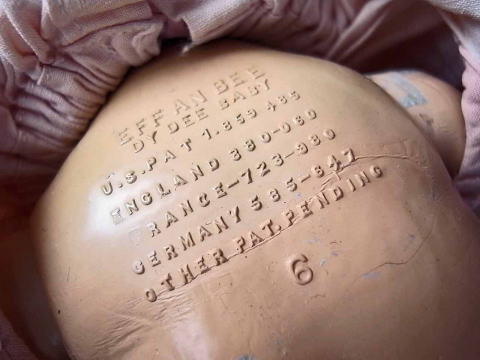 EFF AN BEE
DY DEE BABY
U.S.PAT 1.859 485
ENGLAND 380-060
FRANCE-723-980
GERMANY 585-647
OTHER PAT.PENDING
6